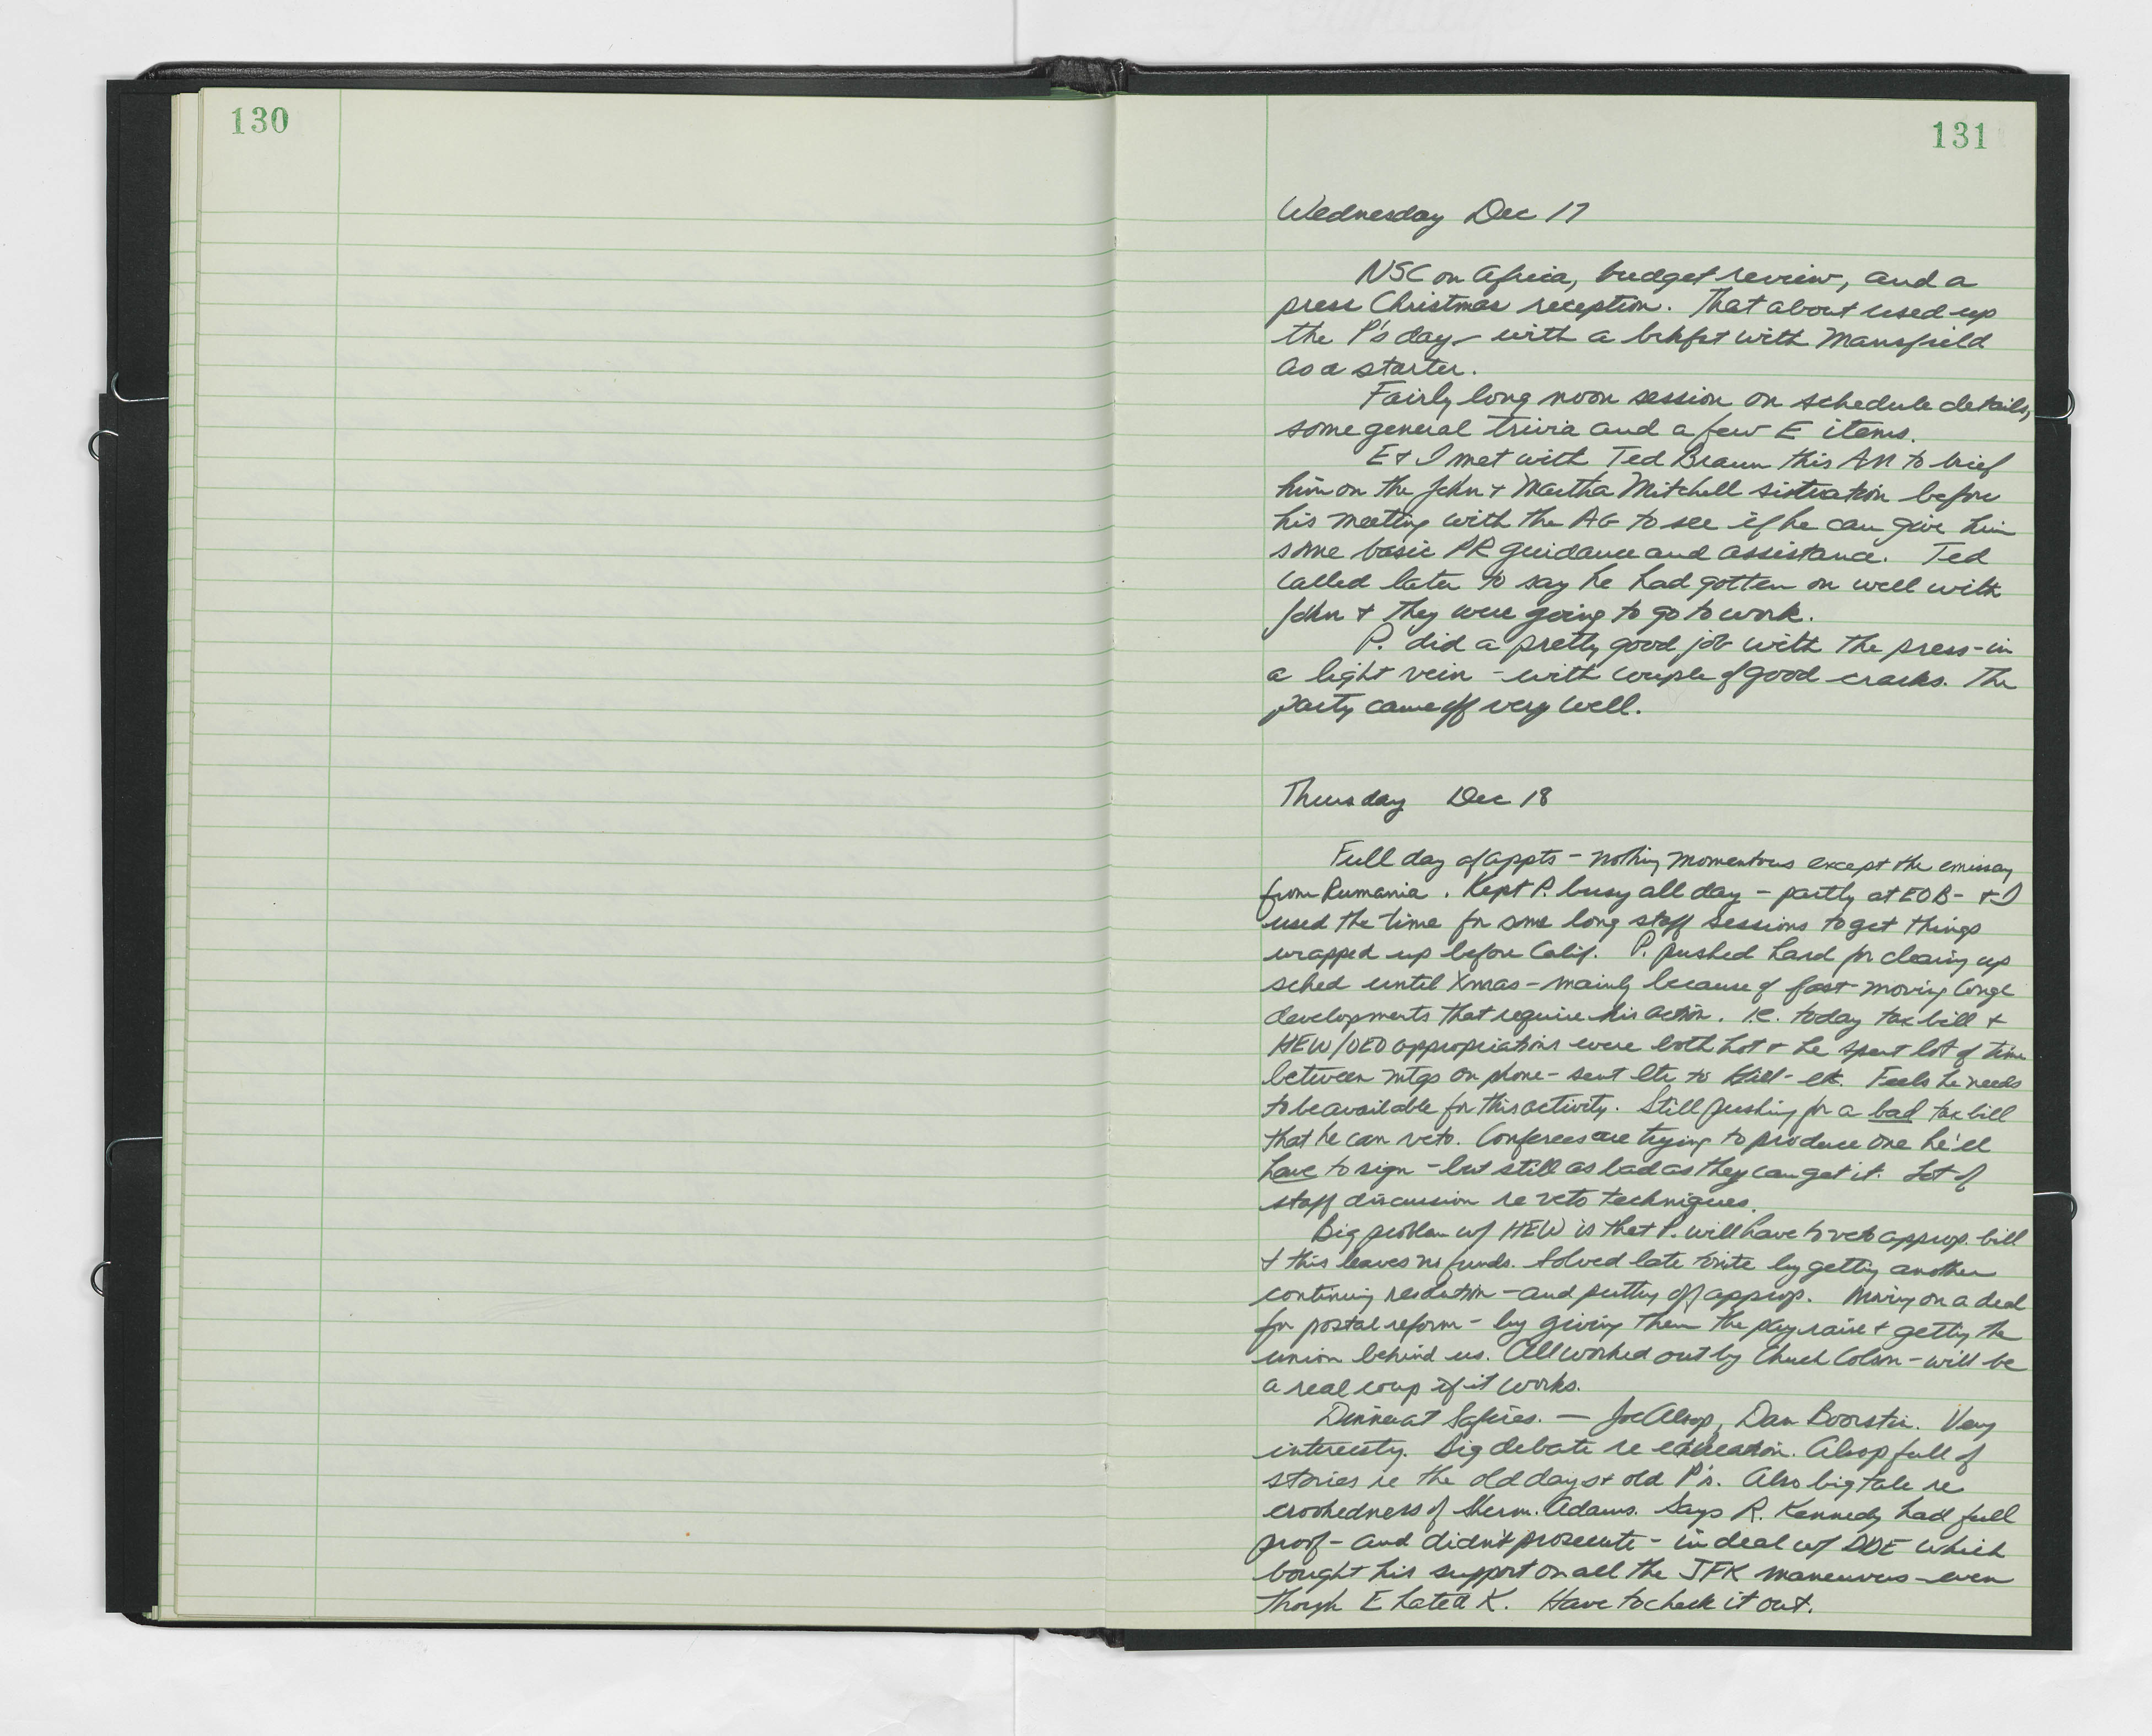 130
131
Wednesday Dec 17
NSC on Africa, budget review, and a
press Christmas reception. That about used up
the P's day - with a bkfst with Mansfield
as a starter.
Fairly long noon session on schedule details,
some general trivia and a few E items.
E + I met with Ted Braun this AM to brief
him on the John + Martha Mitchell situation before
his meeting with the AG to see if he can give him
some basic PR guidance and assistance. Ted
called later to say he had gotten on well with
John + they were going to go to work.
P. did a pretty good job with the press - in
a light vein - with couple of good cracks. The
party came off very well.
Thursday Dec 18
Full day of appts - nothing momentous except the emissary
from Rumania. Kept P. busy all day - partly at EOB - + I
used the time for some long staff sessions to get things
wrapped up before Calif. P. pushed hard for clearing up
sched until Xmas - mainly because of fast-moving Congl
developments that require his action. i.e. today tax bill +
HEW/OEO appropriations were both hot + he spent lot of time
between mtgs on phone - sent ltr to Hill - etc. Feels he needs
to be available for this activity. Still pushing for a bad tax bill
that he can veto. Conferees are trying to produce one he'll
have to sign - but still as bad as they can get it. Lot of
staff discussion re veto techniques.
Big problem w/ HEW is that P. will have to veto approp. bill
+ this leaves no funds. Solved late tonite by getting another
continuing resolution - and putting off approp. Moving on a deal
for postal reform - by giving them the pay raise + getting the
union behind us. All worked out by Chuck Colson - will be
a real coup if it works.
Dinner at Safires. - Joe Alsop, Dan Boorstin. Very
interesting. Big debate re education. Alsop full of
stories re the old days + old P's. Also big tale re
crookedness of Sherm. Adams. Says R. Kennedy had full
proof - and didn't prosecute - in deal w/ DDE which
bought his support on all the JFK maneuvers - even
though E hated K. Have to check it out.